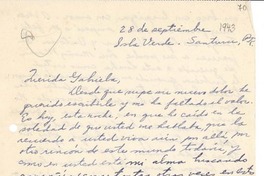 70
28 de septiembre 1943
Isla Verde - Santurce, P.R.
Querida Gabriela,
Desde que supe su nuevo dolor he
querido escribirle y me ha faltado el valor.
Es hoy, esta noche, en que he caído en la
soledad de que usted me hablaba, que la
recuerdo a usted viva aún por allá por
otro rincón de este mundo todavía y
como en usted está mi alma buscando
otras veces en esta